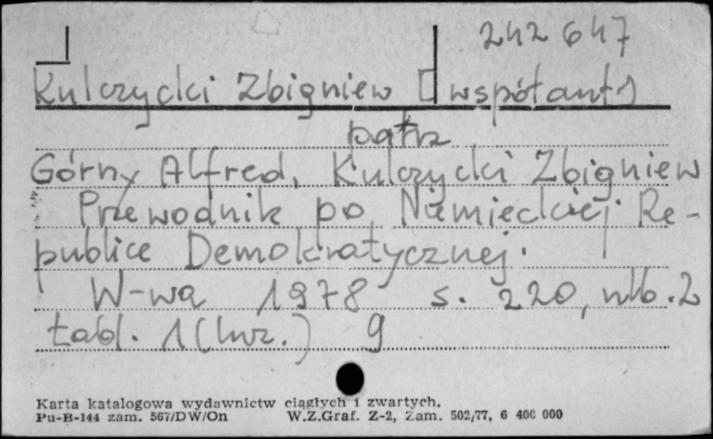 242647
Kulczycki Zbigniew [współaut]
patrz
Górny Alfred, Kulczycki Zbigniew
Przewodnik po Niemieckiej Re-
publice Demokratycznej.
W-wa 1978 s. 220, nlb. 2
tabl. 1 (luz.) 9
Karta katalogowa wydawnictw ciągłych i zwartych.
Pu-B-144 zam. 567/DW/On W.Z.Graf. Z-2, Zam. 502/77, 6 400 000